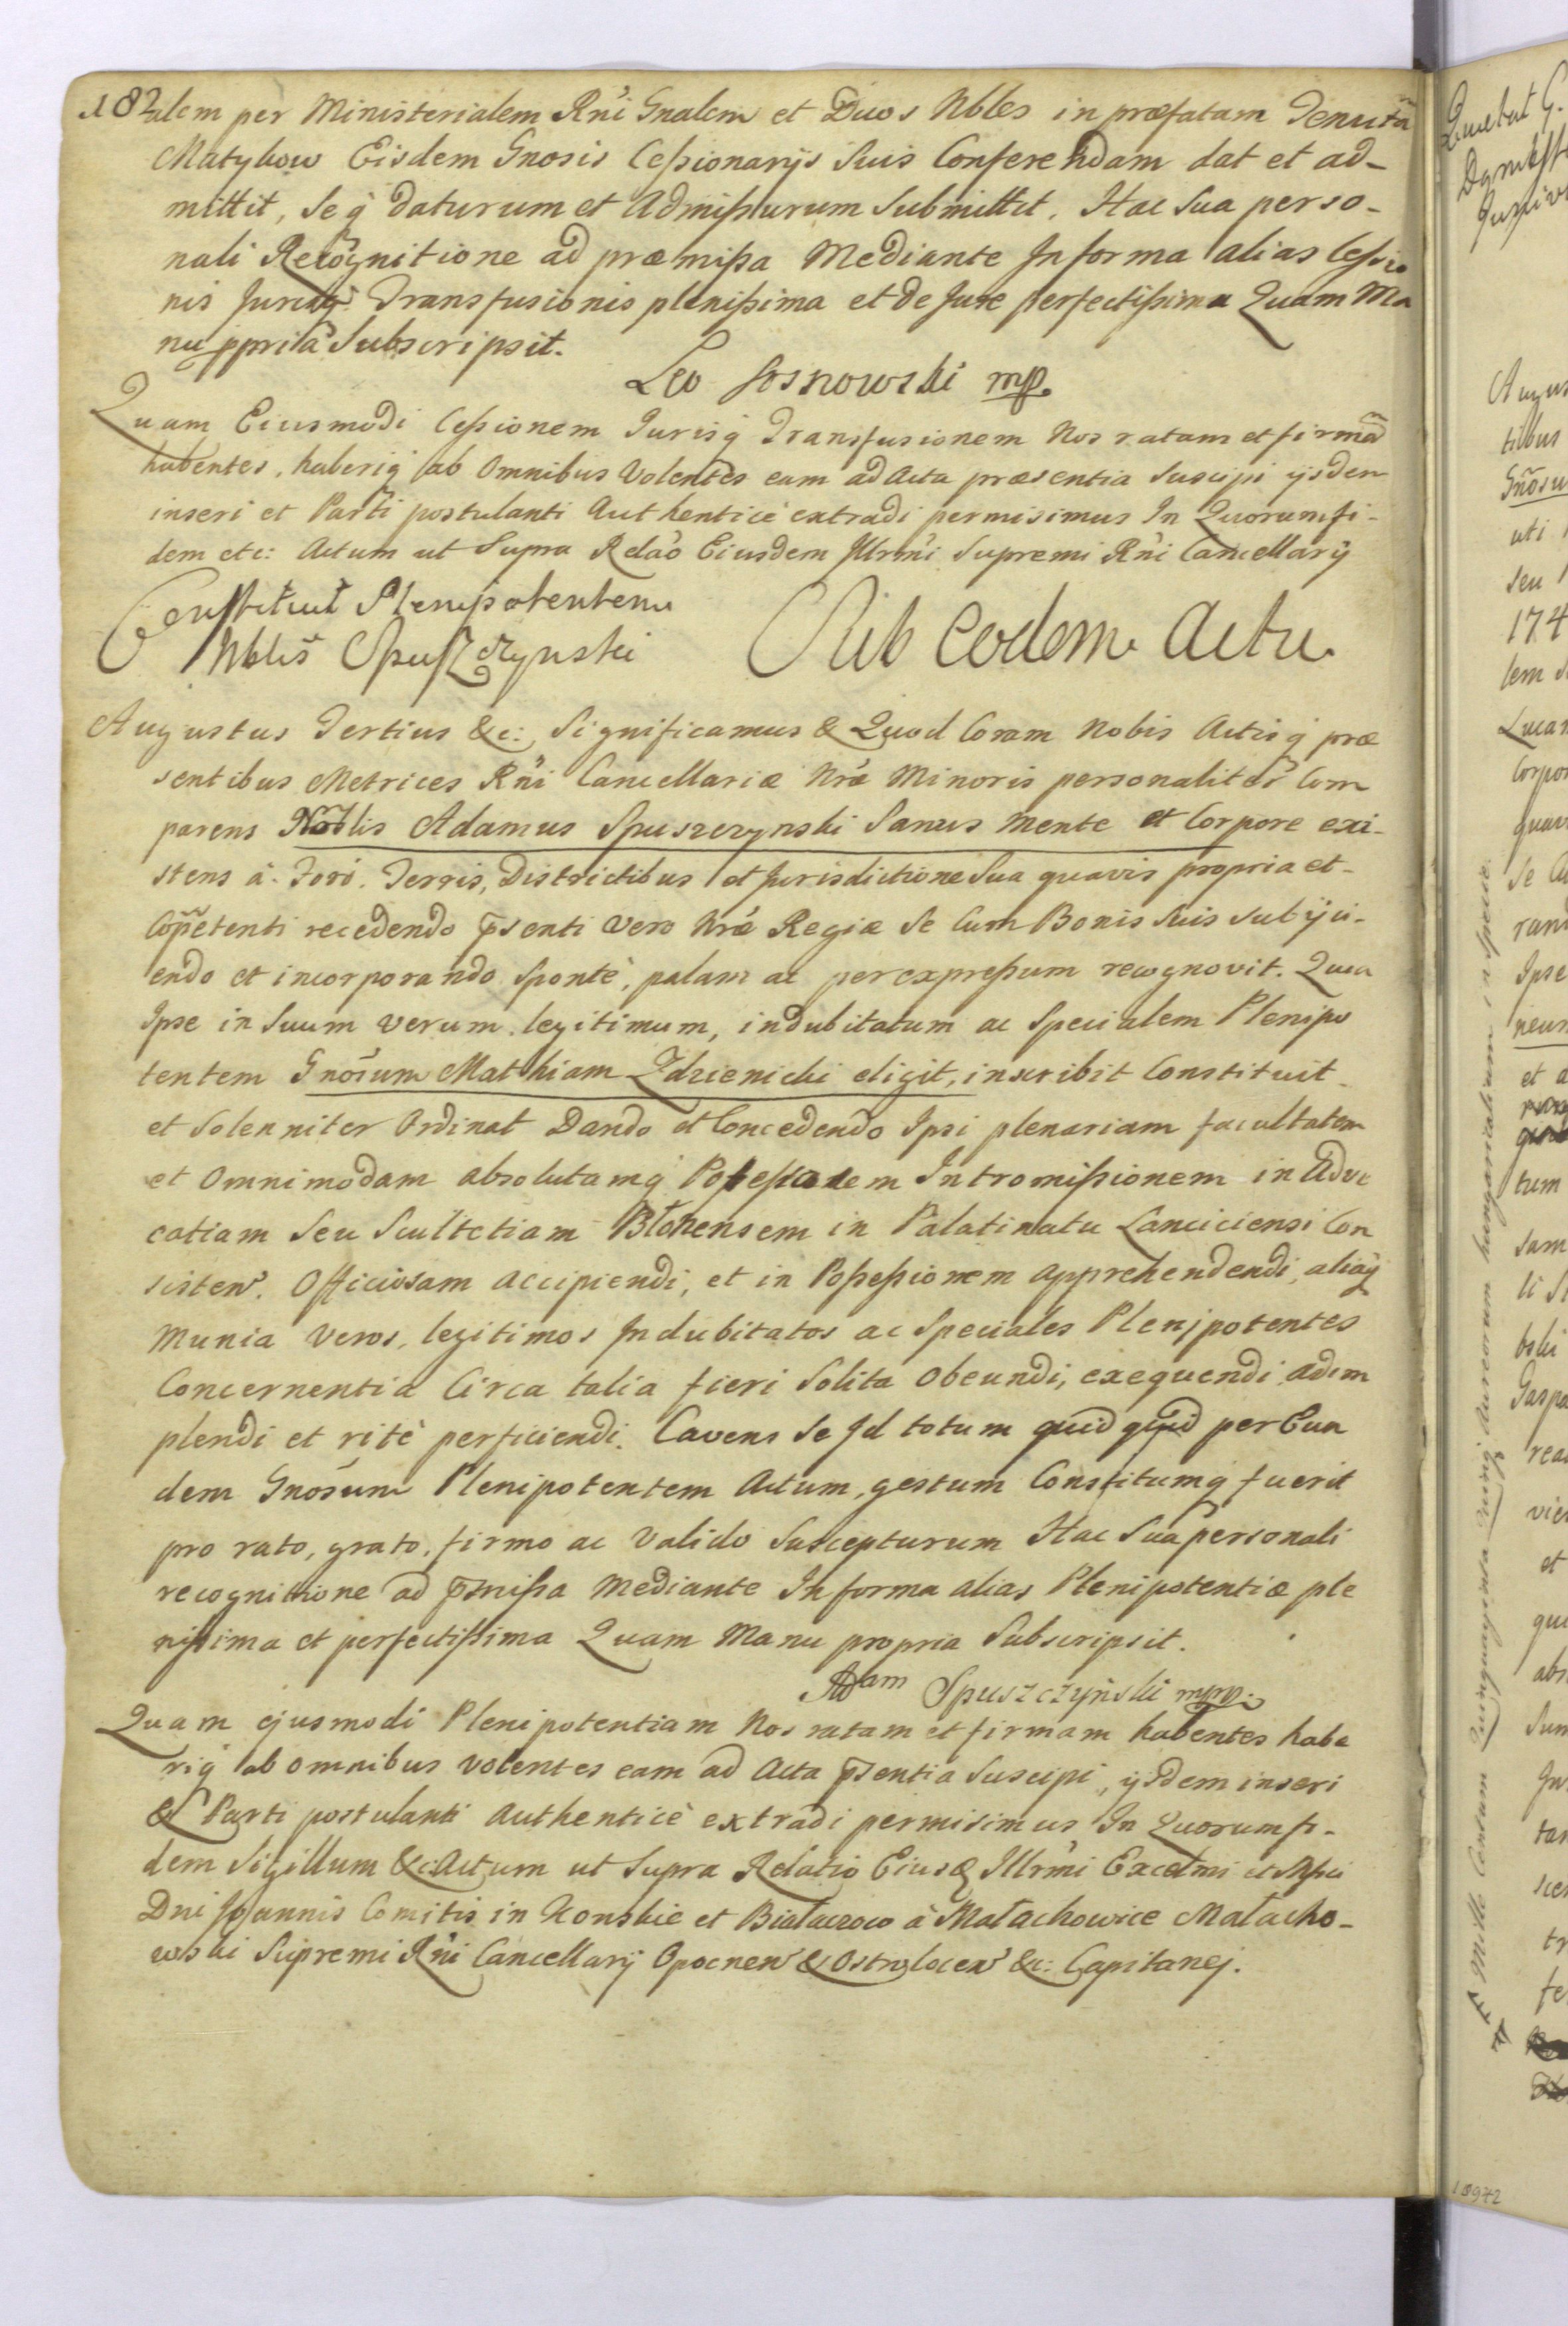 182
alem per Ministerialem Rñi Gnalem et Duos Nbles in præfatam Tenutã
Matykow Eisdem Gnosis Cessionarijs Suis Conferendam dat et ad-
mittit, Se q̀ daturum et Admissurum Submittit. Hac Sua perso-
nali Recognitione ad præmissa Mediante In forma alias Cessio
nis Jurisq̀ Transfusionis plenissima et de Jure perfectissima Quam Ma
nu ppria Subscripsit.
Leo Sosnowski mp.
Quam Eiusmodi Cessionem Jurisq̀ Transfusionem Nos ratam et firmã
habentes, haberiq̀ ab Omnibus Volentes eam ad Acta præsentia Suscipi ijsdem
inseri et Parti postulanti Authenticè extradi permisimus In Quorum fi-
dem etc: Actum ut Supra Relao Eiusdem Illrmi Supremi Rñi Cancellarij
Constituit Plenipotentem
Nblis Spuszczynski
Sub Eodem Actu
Augustus Tertius &c: Significamus & Quod Coram Nobis Actisq̀ præ
sentibus Metrices Rñi Cancellariæ Nræ Minoris personaliter Com
parens Noblis Adamus Spuszczynski Sanus Mente et Corpore exi-
stens à Foro. Terris, Districtibus et Jurisdictione Sua quavis propria et-
Compĕtenti recedendo p̄senti vero Nræ Regiæ Se Cum Bonis Suis subijci-
endo et incorporando Spontè, palam ac per expressum recognovit. Quia
Ipse in Suum verum, legitimum, indubitatum ac Specialem Plenipo
tentem Gnosum Matthiam Zdzienicki eligit, inscribit Constituit
et Solenniter Ordinat Dando et Concedendo Ipsi plenariam facultatem
et Omnimodam absolutamq̀ Potestatem Intromissionem in Advo
catiam Seu Scultetiam Błonensem in Palatinatu Lanciciensi Con
sisten. Officiosam accipiendi, et in Possessionem apprehendendi, aliaq̀
Munia Veros, legitimos Indubitatos ac Speciales Plenipotentes
Concernentia Circa talia fieri Solita Obeundi, exequendi adim
plendi et ritè perficiendi. Cavens Se Id totum quidquid per Eun
dem Gnosum Plenipotentem Actum, gestum Constitumq̀ fuerit
pro rato, grato, firmo ac Valido Suscepturum Hac Sua personali
recognitione ad p̄missa Mediante In forma alias Plenipotentiæ ple
nissima et perfectissima Quam Manu propria Subscripsit.
Adam Spuszczyński mpp.
Quam ejusmodi Plenipotentiam Nos ratam et firmam habentes habe
riq̀ ab omnibus volentes eam ad Acta p̄sentia Suscipi, ijsdem inseri
& Parti postulanti Authenticè extradi permisimus In Quorum fi-
dem Sigillum &c Actum ut Supra Relatio Eiusd Illrmi Excelmi et Mfici
Dni Joannis Comitis in Konskie et Białaczow à Małachowice Małacho-
wski Supremi Rñi Cancellarij Opocnen & Ostrolocen &c: Capitanej.